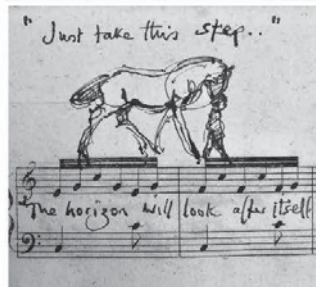 "Just take this step.."
The horizon will look after itself